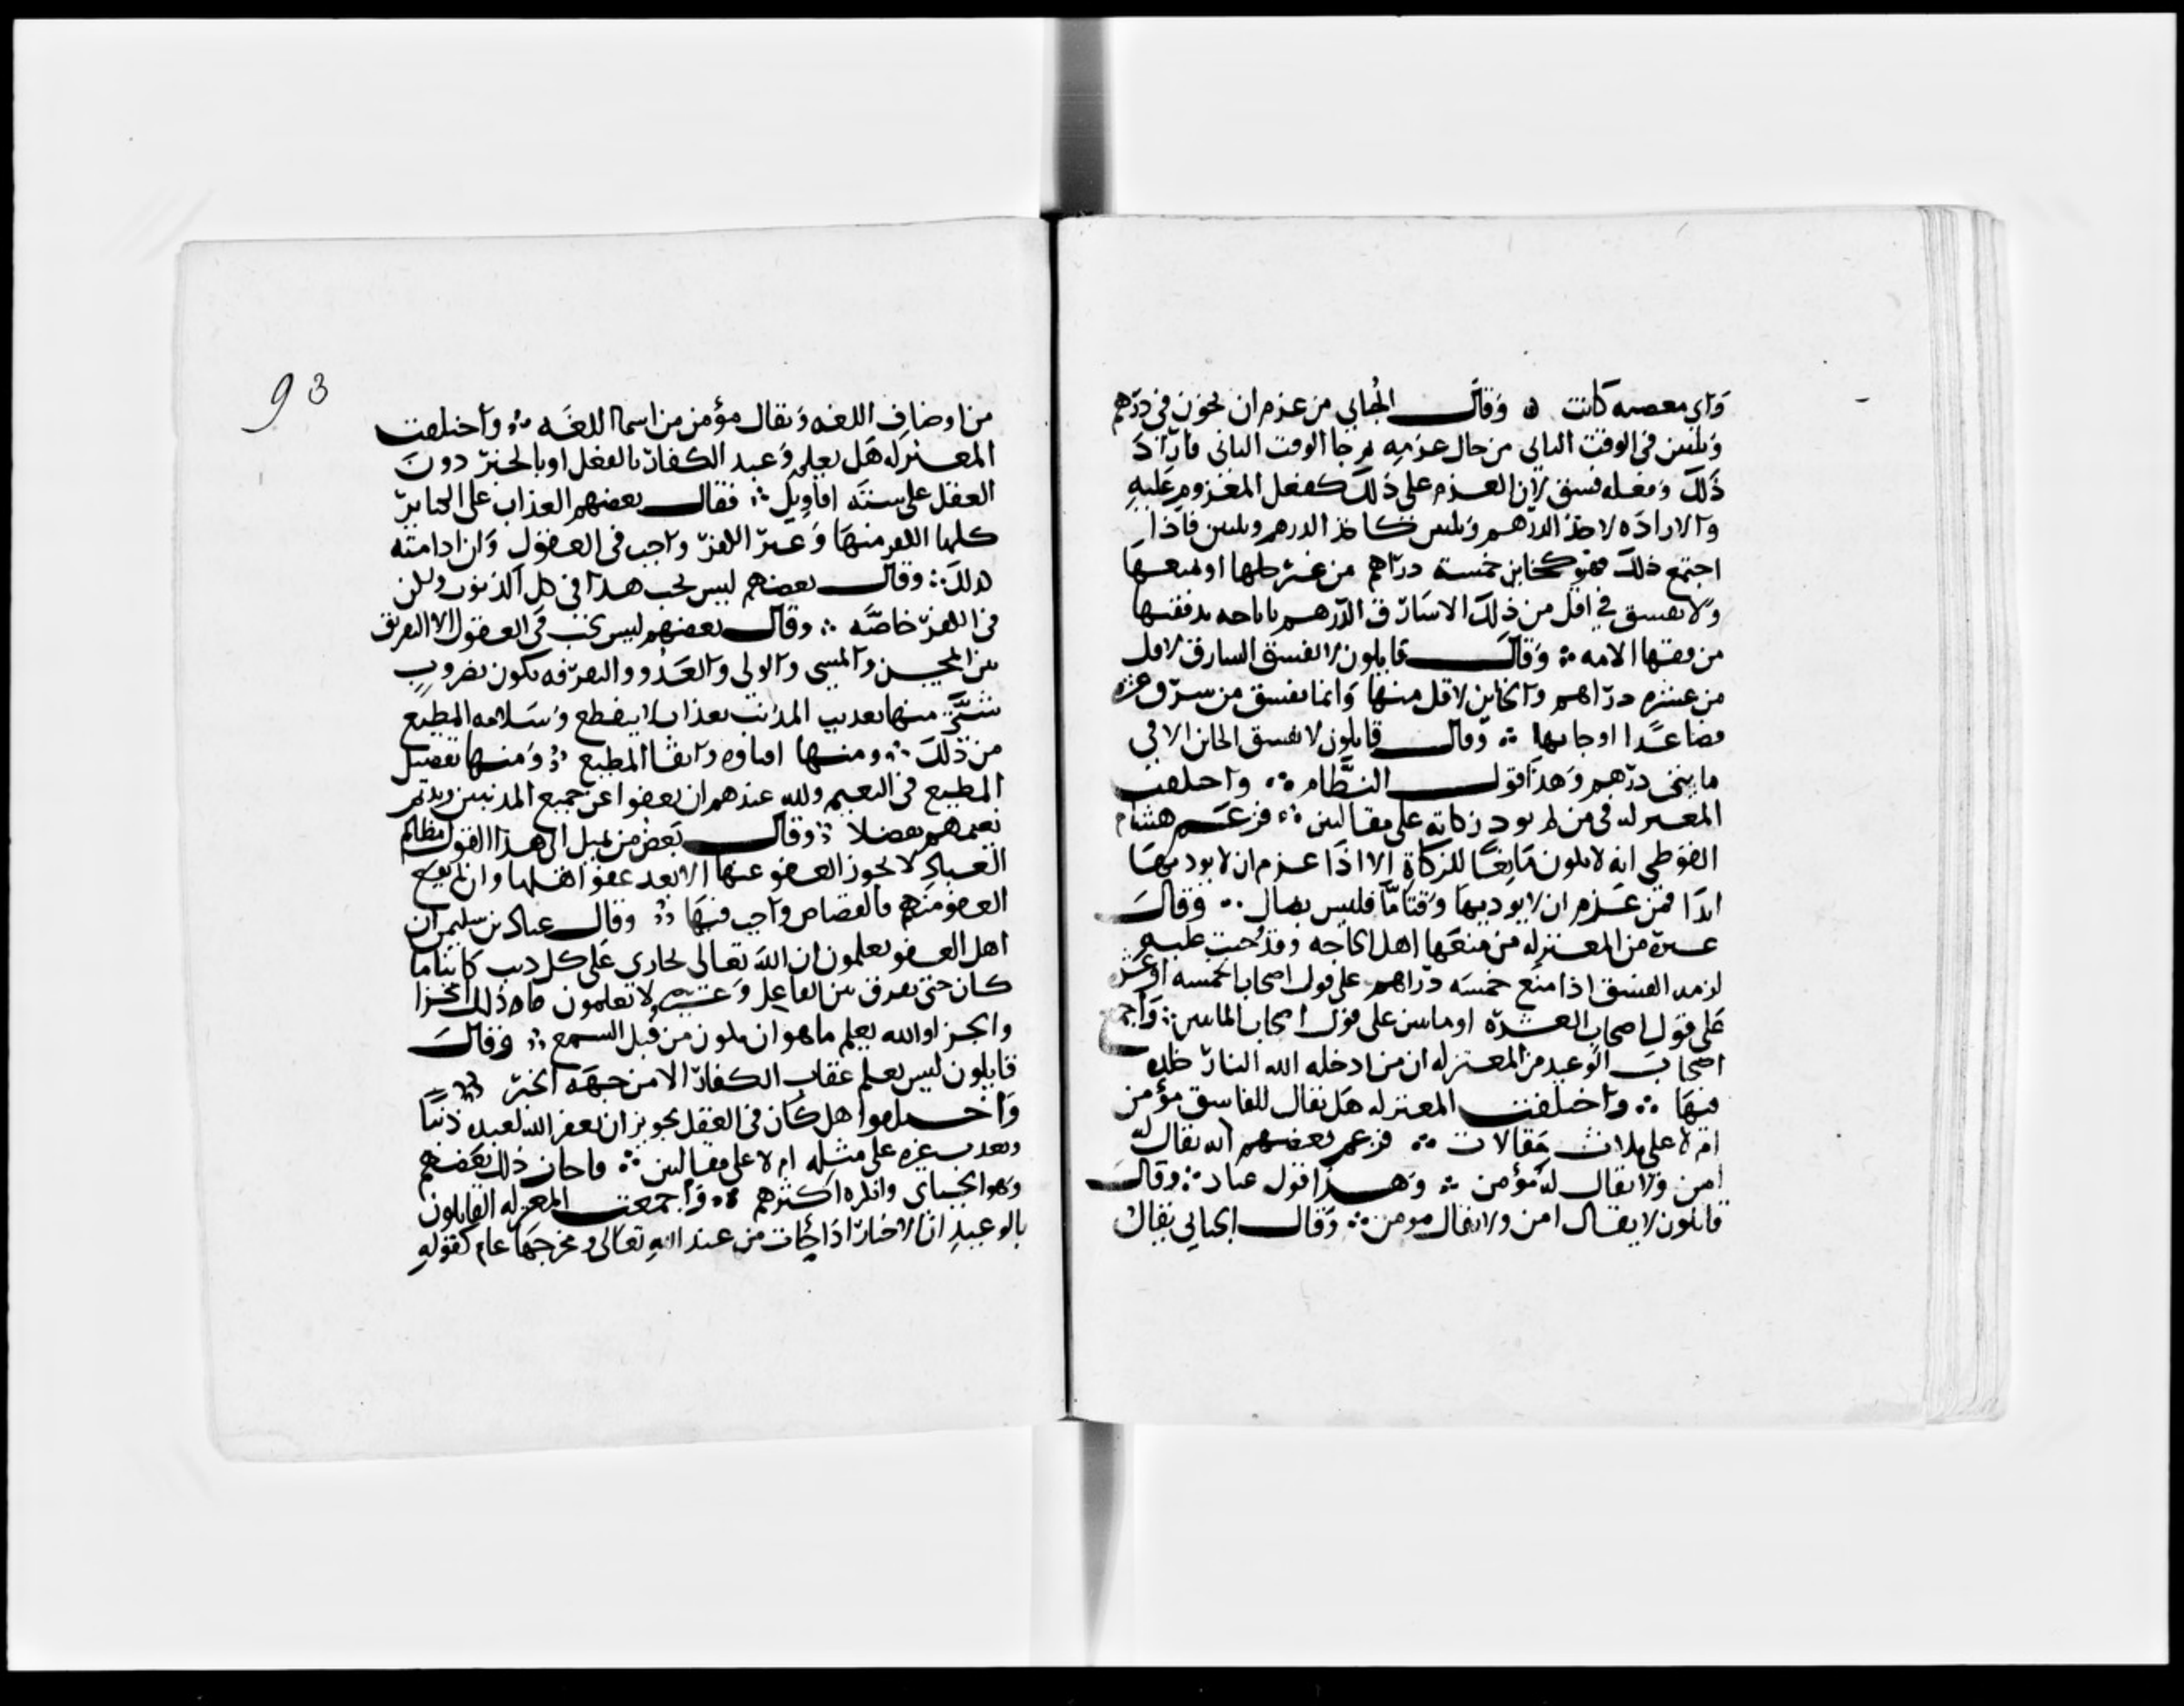 واى معصيه كانت ۞ وقال الجبايى من عزم ان يخون فى درهم
وثلثين فى الوقت الثانى من حال عزمه ثم جا الوقت الثانى فاراد
ذلك وفعله فسق لان العزم على ذلك كفعل المعزوم عليه
والاراده لاخذ الدرهم وثلثين كاخذ الدرهم وثلثين فاذا
اجتمع ذلك فهو كخاين خمسة دراهم من غير حلها او منعها
ولا يفسق فى اقل من ذلك الا سارق الدرهم
من فقها الامه ∴ وقال قايلون لا يفسق السارق لاقل
من عشره دراهم والخاين لاقل منها وانما يفسق من سرق عشره
فصاعدا او خانها ∴ وقال قايلون لا يفسق الخاين الا فى
مايتى درهم وهذا قول النظام ∴ واختلفت
المعتزله فى من لم يود زكاته على مقالتين ∴ فزعم هشام
الفوطى انه لا يكون مانعا للزكاة الا اذا عزم ان لا يوديها
ابدا فمن عزم ان لا يوديها وقتا ما فليس بضال ∴ وقال
غيره من المعتزله من منعها اهل الحاجه وقد وجبت عليه
لزمه الفسق اذا منع خمسه دراهم على قول اصحاب الخمسه او عشره
على قول اصحاب العشره او مايتين على قول اصحاب المايتين ∴ واجمع
اصحاب الوعيد من المعتزله ان من ادخله الله النار خلده
فيها ∴ واختلفت المعتزله هل يقال للفاسق مؤمن
ام لا على ثلاث مقالات ∴ فزعم بعضهم انه يقال له
امن ولا يقال له مؤمن ∴ وهذا قول عباد ∴ وقال
قايلون لا يقال امن ولا يقال مومن ∴ وقال الجبايى يقال
93
من اوصاف اللغه ويقال مؤمن من اسما اللغه ∴ واختلفت
المعتزله هل يعلم وعيد الكفار بالعقل او بالخبر دون
العقل على سته اقاويل ∴ فقال بعضهم العذاب على الكباير
كلها الكفر منها وغير الكفر واجب فى العقول وان ادامته
كذلك ∴ وقال بعضهم ليس يجب هذا فى كل الذنوب ولكن
فى الكفر خاصه ∴ وقال بعضهم ليس يجب فى العقول الا التفريق
بين المحسن والمسى والولى والعدو والتفرقه تكون بضروب
شتى منها تعذيب المذنب بعذاب لا ينقطع وسلامه المطيع
من ذلك ∴ ومنها افناوه وابقا المطيع ∴ ومنها تفضيل
المطيع فى النعيم ولله عندهم ان يعفوا عن جميع المذنبين ويديم
نعيمهم تفضلا ∴ وقال بعض من يميل الى هذا القول مظالم
العباد لا يجوز العفو عنها الا بعد عفو اهلها وان لم يقع
العفو منهم فالقصاص واجب فيها ∴ وقال عباد بن سليمن ان
اهل العقول يعلمون ان الله تعالى يجازى على كل ذنب كاينا ما
كان حتى يفرق بين الفاعل وغيره ولا يعلمون ما ذلك الجزا
والجزا والله يعلم ما هو ان يكون من قبل السمع ∴ وقال
قايلون ليس يعلم عقاب الكفار الا من جهة الخبر ∴
واختلفوا هل كان فى العقل يجوز ان يغفر الله لعبده ذنبا
ويعذب غيره على مثله ام لا على مقالتين ∴ فاجاز ذلك بعضهم
وهو الجبايى وانكره اكثرهم ∴ واجمعت المعتزله القايلون
بالوعيد ان الاخبار اذا جات من عند الله تعالى ومخرجها عام كقوله